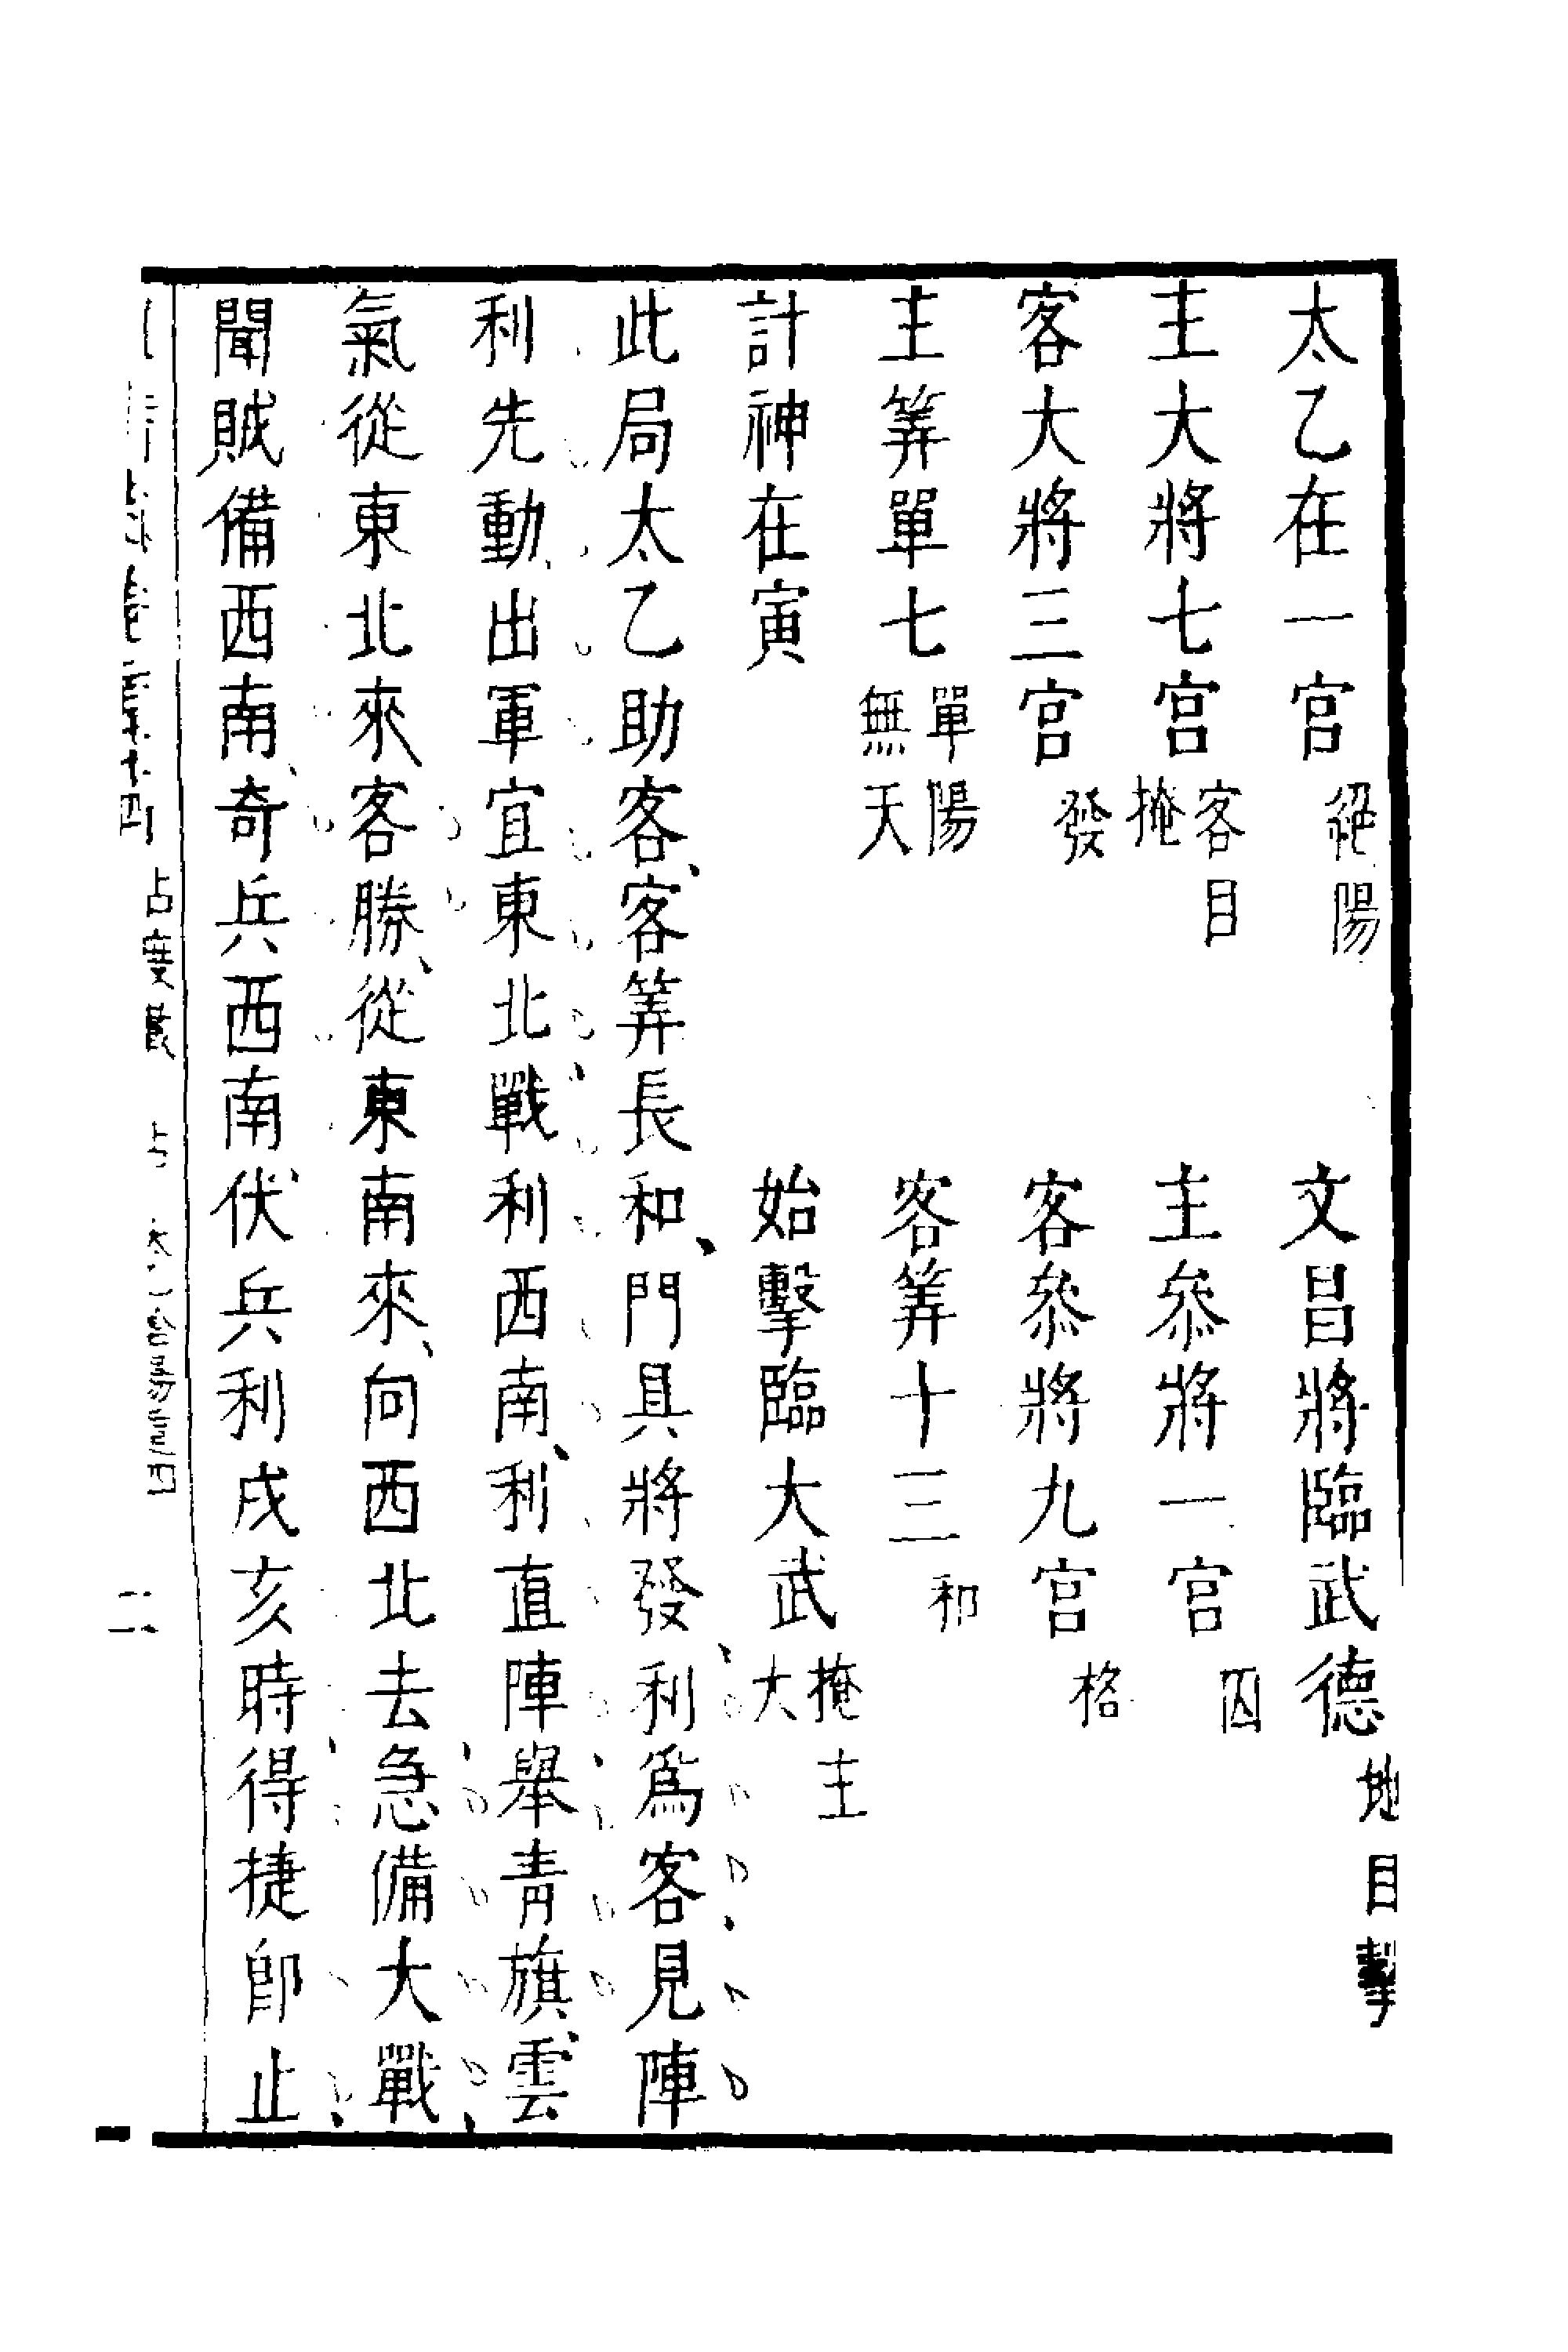 太乙在一宫絕陽　文昌將臨武德地目擊
主大將七宫客目掩　主叅將一宫囚
客大將三宫發　客叅將九宫格
主筭單七單陽無天　客筭十三和
計神在寅　始擊臨大武掩主大
此局太乙助客、客筭長和、門具將發、利爲客見陣
利先動、出軍宜東北戰、利西南、利直陣、舉青旗、雲
氣從東北來客勝、從東南來、向西北去、急備大戰、
聞賊備西南、奇兵西南、伏兵利戌亥時、得捷卽止、
占度載　占
四
二